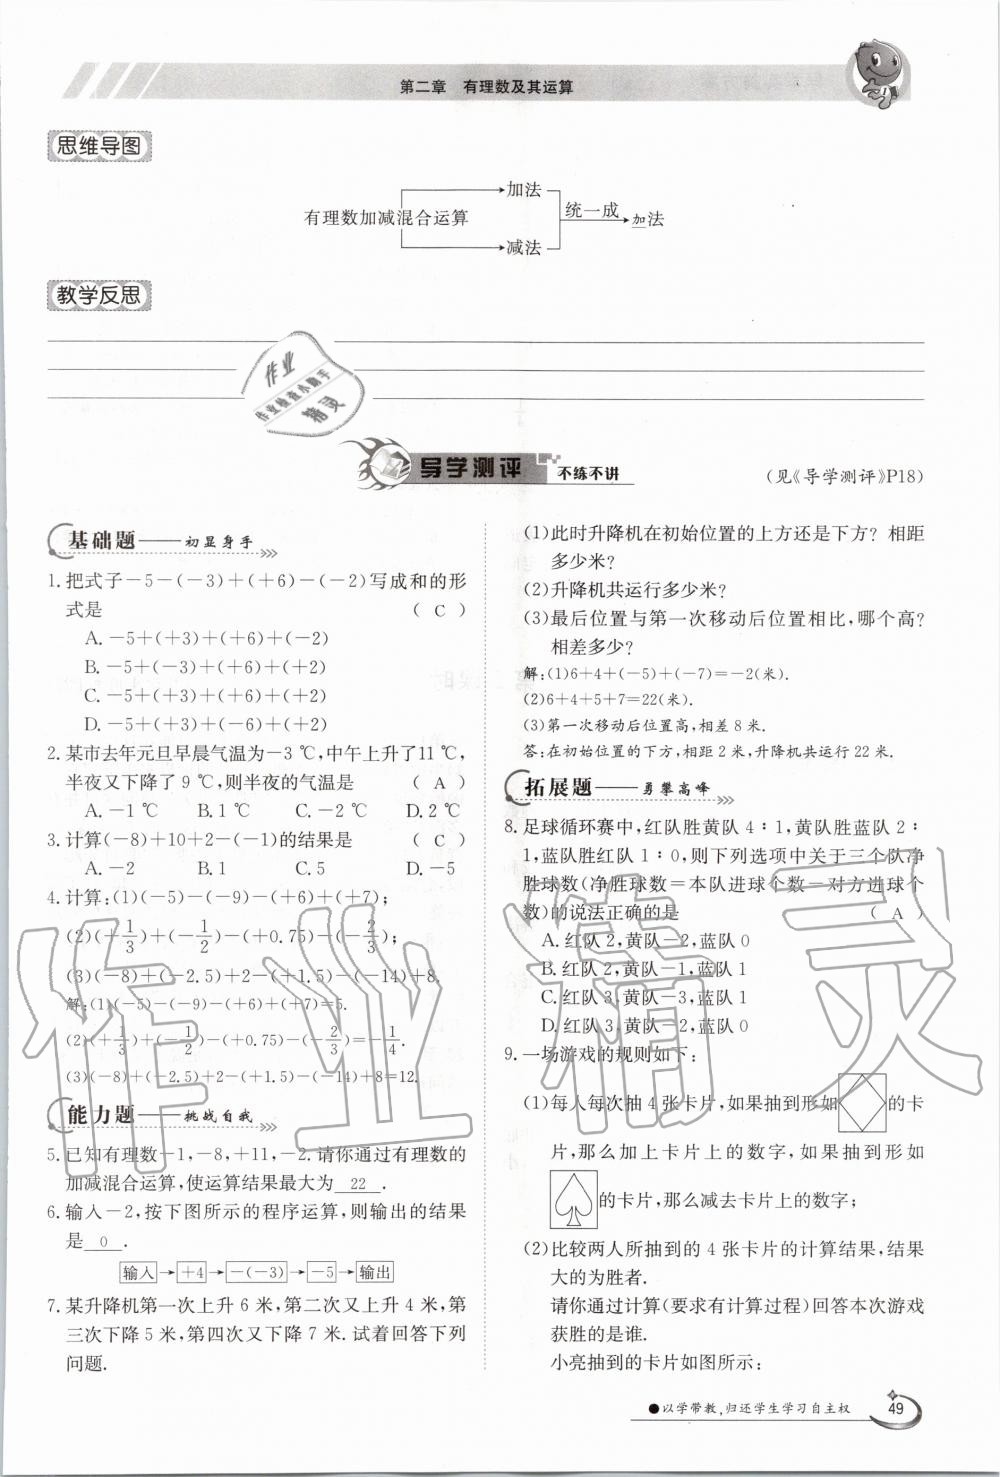 第二章 有理数及其运算
思维导图
有理数加减混合运算
加法
减法
统一成
加法
教学反思
作业
作业检查小助手
精灵
导学测评 不练不讲
(见《导学测评》P18)
基础题——初显身手
1.把式子-5-(-3)+(+6)-(-2)写成和的形
式是 ( C )
A.-5+(+3)+(+6)+(-2)
B.-5+(-3)+(+6)+(+2)
C.-5+(+3)+(+6)+(+2)
D.-5+(+3)+(-6)+(+2)
2.某市去年元旦早晨气温为-3 ℃,中午上升了11 ℃,
半夜又下降了 9 ℃,则半夜的气温是 ( A )
A.-1 ℃ B.1 ℃ C.-2 ℃ D.2 ℃
3.计算(-8)+10+2-(-1)的结果是 ( C )
A.-2 B.1 C.5 D.-5
4.计算:(1)(-5)-(-9)-(+6)+(+7);
(2)(+1/3)+(-1/2)-(+0.75)-(-2/3);
(3)(-8)+(-2.5)+2-(+1.5)-(-14)+8.
解:(1)(-5)-(-9)-(+6)+(+7)=5.
(2)(+1/3)+(-1/2)-(+0.75)-(-2/3)=-1/4.
(3)(-8)+(-2.5)+2-(+1.5)-(-14)+8=12.
能力题——挑战自我
5.已知有理数-1,-8,+11,-2.请你通过有理数的
加减混合运算,使运算结果最大为 22 .
6.输入-2,按下图所示的程序运算,则输出的结果
是 0 .
输入→+4→-(-3)→-5→输出
7.某升降机第一次上升 6 米,第二次又上升 4 米,第
三次下降 5 米,第四次又下降 7 米.试着回答下列
问题.
(1)此时升降机在初始位置的上方还是下方? 相距
多少米?
(2)升降机共运行多少米?
(3)最后位置与第一次移动后位置相比,哪个高?
相差多少?
解:(1)6+4+(-5)+(-7)=-2(米).
(2)6+4+5+7=22(米).
(3)第一次移动后位置高,相差 8 米.
答:在初始位置的下方,相距 2 米,升降机共运行 22 米.
拓展题——勇攀高峰
8.足球循环赛中,红队胜黄队 4∶1,黄队胜蓝队 2∶
1,蓝队胜红队 1∶0,则下列选项中关于三个队净
胜球数(净胜球数=本队进球个数-对方进球个
数)的说法正确的是 ( A )
A.红队 2,黄队-2,蓝队 0
B.红队 2,黄队-1,蓝队 1
C.红队 3,黄队-3,蓝队 1
D.红队 3,黄队-2,蓝队 0
9.一场游戏的规则如下:
(1)每人每次抽 4 张卡片,如果抽到形如 的卡
片,那么加上卡片上的数字,如果抽到形如
的卡片,那么减去卡片上的数字;
(2)比较两人所抽到的 4 张卡片的计算结果,结果
大的为胜者.
请你通过计算(要求有计算过程)回答本次游戏
获胜的是谁.
小亮抽到的卡片如图所示:
作业精灵
●以学带教,归还学生学习自主权 49